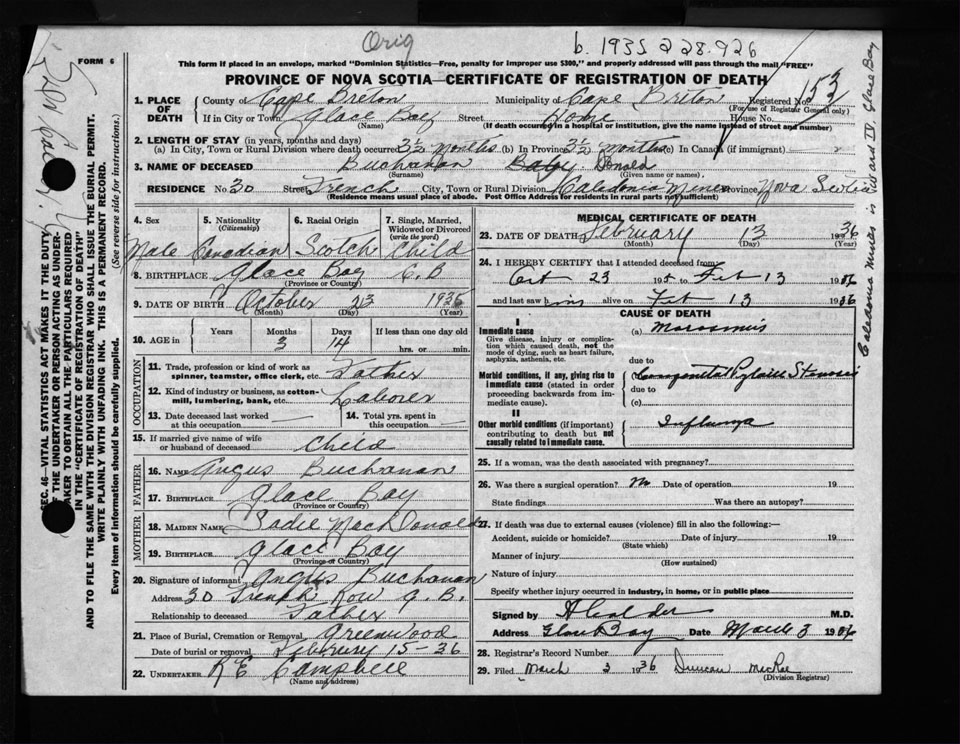 Orig
b. 1935 228.926
FORM 6
This form if placed in an envelope, marked "Dominion Statistics—Free, penalty for improper use $300," and properly addressed will pass through the mail "FREE"
PROVINCE OF NOVA SCOTIA—CERTIFICATE OF REGISTRATION OF DEATH
153
1. PLACE OF DEATH
County of Cape Breton Municipality of Cape Breton Registered No.
(For use of Registrar General only)
If in City or Town Glace Bay Street Home House No.
(Name) (If death occurred in a hospital or institution, give the name instead of street and number)
2. LENGTH OF STAY (in years, months and days)
(a) In City, Town or Rural Division where death occurred 3½ Months (b) In Province 3½ Months (c) In Canada (if immigrant)
3. NAME OF DECEASED Buchanan Baby Donald
(Surname) (Given name or names)
RESIDENCE No. 30 Street French City, Town or Rural Division Caledonia Mines Province Nova Scotia
(Residence means usual place of abode. Post Office Address for residents in rural parts not sufficient)
4. Sex 5. Nationality (Citizenship) 6. Racial Origin 7. Single, Married, Widowed or Divorced (write the word)
Male Canadian Scotch Child
8. BIRTHPLACE Glace Bay C.B
(Province or Country)
9. DATE OF BIRTH October 23 1935
(Month) (Day) (Year)
10. AGE in Years Months Days If less than one day old
3 14 hrs. or min.
OCCUPATION
11. Trade, profession or kind of work as spinner, teamster, office clerk, etc. Father
12. Kind of industry or business, as cotton-mill, lumbering, bank, etc. Laborer
13. Date deceased last worked at this occupation — 14. Total yrs. spent in this occupation —
15. If married give name of wife or husband of deceased Child
FATHER
16. NAME Angus Buchanan
17. BIRTHPLACE Glace Bay
(Province or Country)
MOTHER
18. MAIDEN NAME Sadie MacDonald
19. BIRTHPLACE Glace Bay
(Province or Country)
20. Signature of informant Angus Buchanan
Address 30 French Row G.B.
Relationship to deceased Father
21. Place of Burial, Cremation or Removal Greenwood
Date of burial or removal February 15-36
22. UNDERTAKER R E Campbell
(Name and address)
MEDICAL CERTIFICATE OF DEATH
23. DATE OF DEATH February 13 1936
(Month) (Day) (Year)
24. I HEREBY CERTIFY that I attended deceased from
Oct 23 1935 to Feb 13 1936
and last saw him alive on Feb 13 1936
CAUSE OF DEATH
I
Immediate cause (a) Marasmus
Give disease, injury or complication which caused death, not the mode of dying, such as heart failure, asphyxia, asthenia, etc.
due to
Morbid conditions, if any, giving rise to immediate cause (stated in order proceeding backwards from immediate cause).
Congenital Pyloric Stenosis
due to
(c)
II
Other morbid conditions (if important) contributing to death but not causally related to immediate cause.
Influenza
25. If a woman, was the death associated with pregnancy?
26. Was there a surgical operation? No Date of operation 19
State findings Was there an autopsy?
27. If death was due to external causes (violence) fill in also the following:—
Accident, suicide or homicide? Date of injury 19
(State which)
Manner of injury
(How sustained)
Nature of injury
Specify whether injury occurred in industry, in home, or in public place
Signed by M.D.
Address Glace Bay Date March 3 1936
28. Registrar's Record Number
29. Filed March 2 1936 Duncan MacRae
(Division Registrar)
SEC. 46—VITAL STATISTICS ACT MAKES IT THE DUTY OF THE UNDERTAKER OR PERSON ACTING AS UNDERTAKER TO OBTAIN ALL THE PARTICULARS REQUIRED IN THE "CERTIFICATE OF REGISTRATION OF DEATH" AND TO FILE THE SAME WITH THE DIVISION REGISTRAR WHO SHALL ISSUE THE BURIAL PERMIT.
WRITE PLAINLY WITH UNFADING INK. THIS IS A PERMANENT RECORD.
Every item of information should be carefully supplied. (See reverse side for instructions.)
Caledonia Mines is Ward IV. Glace Bay